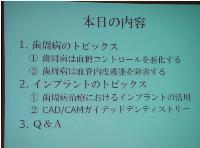 本日の内容
1. 歯周病のトピックス
① 歯周病は血糖コントロールを悪化する
② 歯周病は血管内皮機能を障害する
2. インプラントのトピックス
① 歯周病治療におけるインプラントの活用
② CAD/CAMガイデッドデンティストリー
3. Q&A